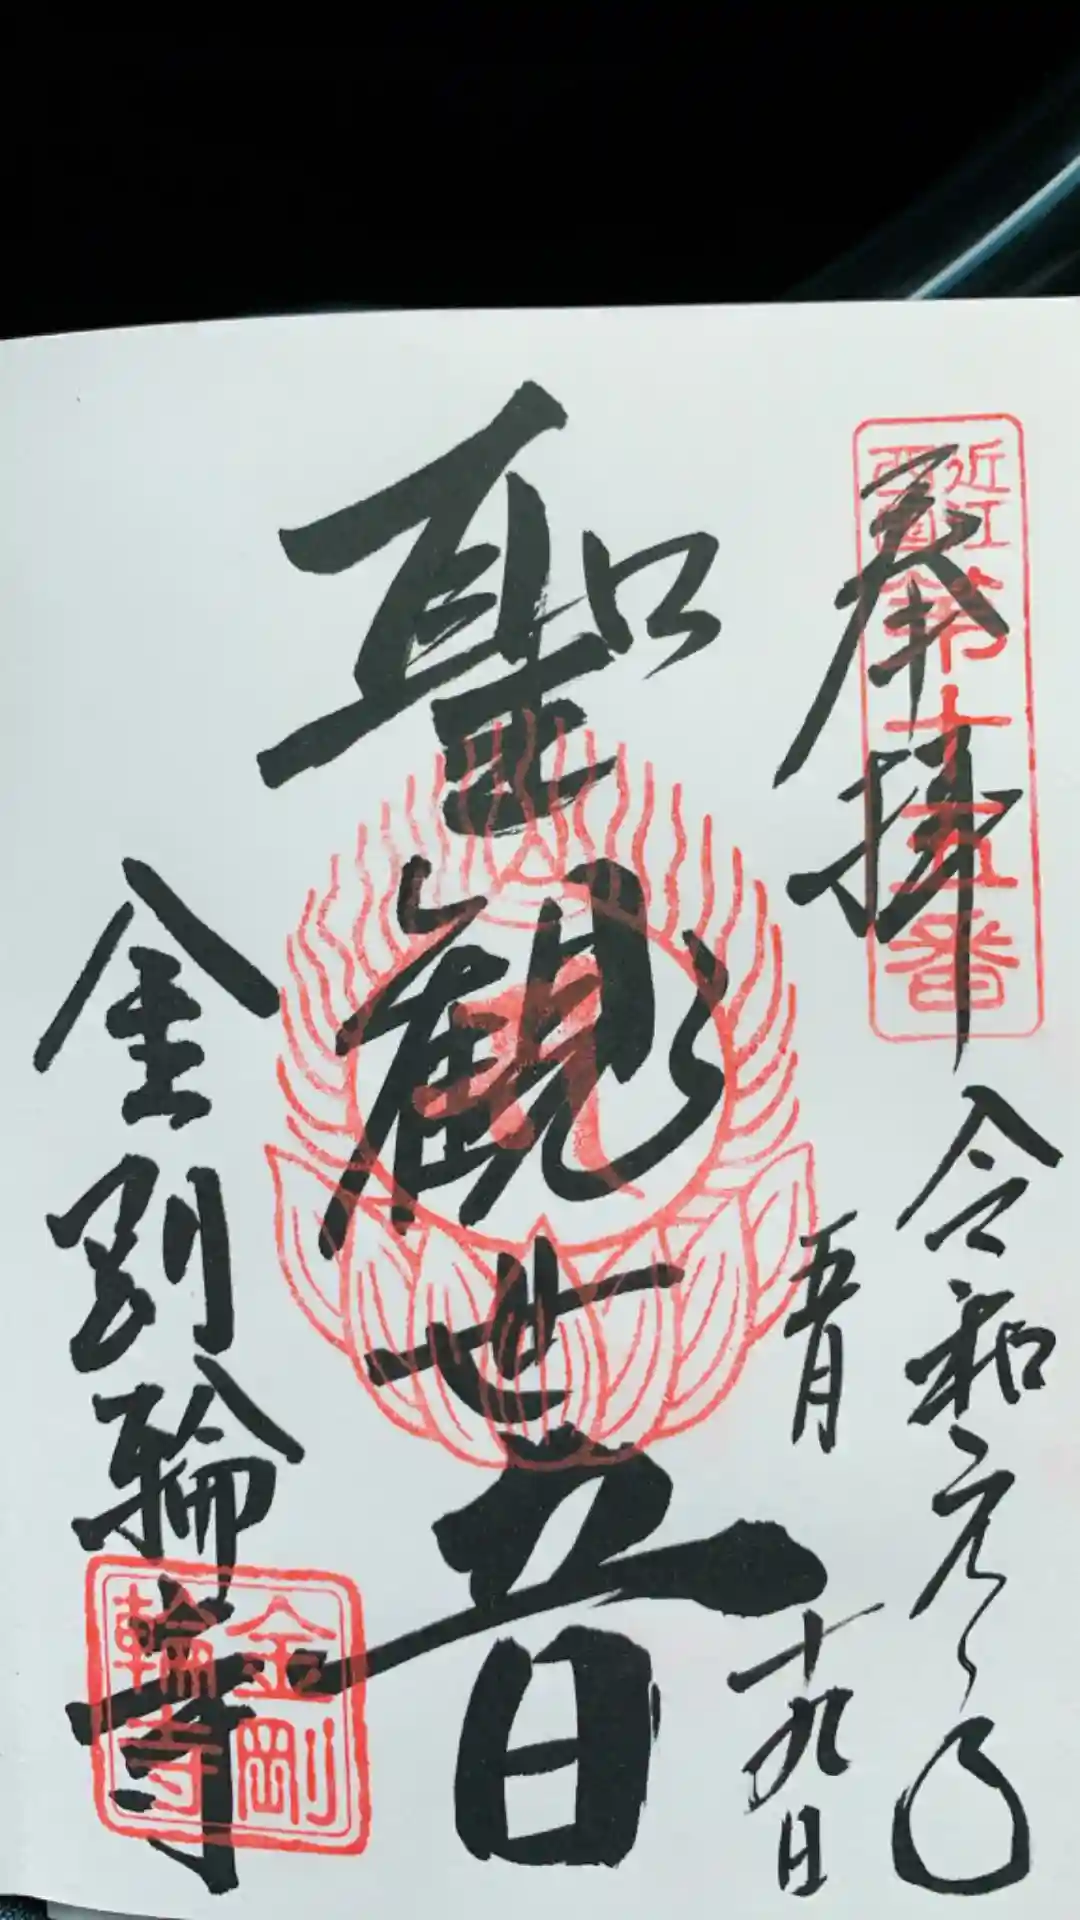 奉拝
近江西国第十五番
令和元年
五月
十九日
聖観世音
金剛輪寺
金剛輪寺